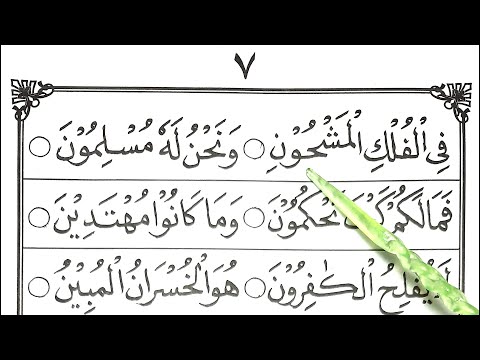 ٧
فِي الْفُلْكِ الْمَشْحُوْنِ ○ وَنَحْنُ لَهٗ مُسْلِمُوْنَ ○
فَمَالَكُمْ تَحْكُمُوْنَ ○ وَمَا كَانُوْا مُهْتَدِيْنَ ○
يُفْلِحُ الْكٰفِرُوْنَ ○ هُوَ الْخُسْرَانُ الْمُبِيْنُ ○